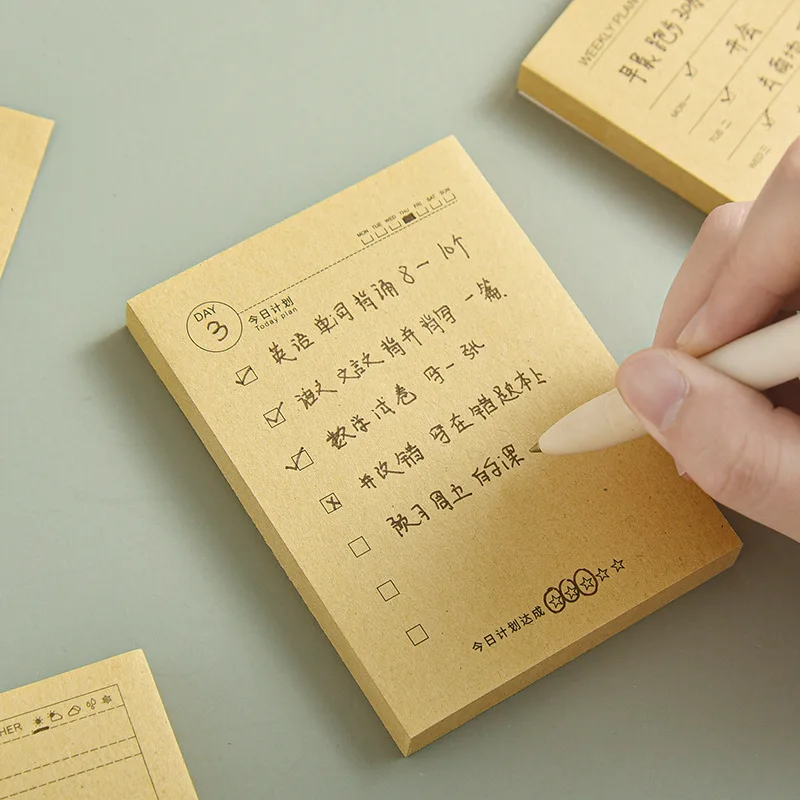 MON TUE WED THU FRI SAT SUN
DAY 3
今日计划
Today plan
英语单词背诵8一10个
语文 文言文 背并背写 一篇.
数学试卷 写一张
并改错 写在错题本上
预习周五的课
今日计划达成
WEEKLY PLAN
早晨跑步30
MON一
开会
TUE 二
WED三
HER